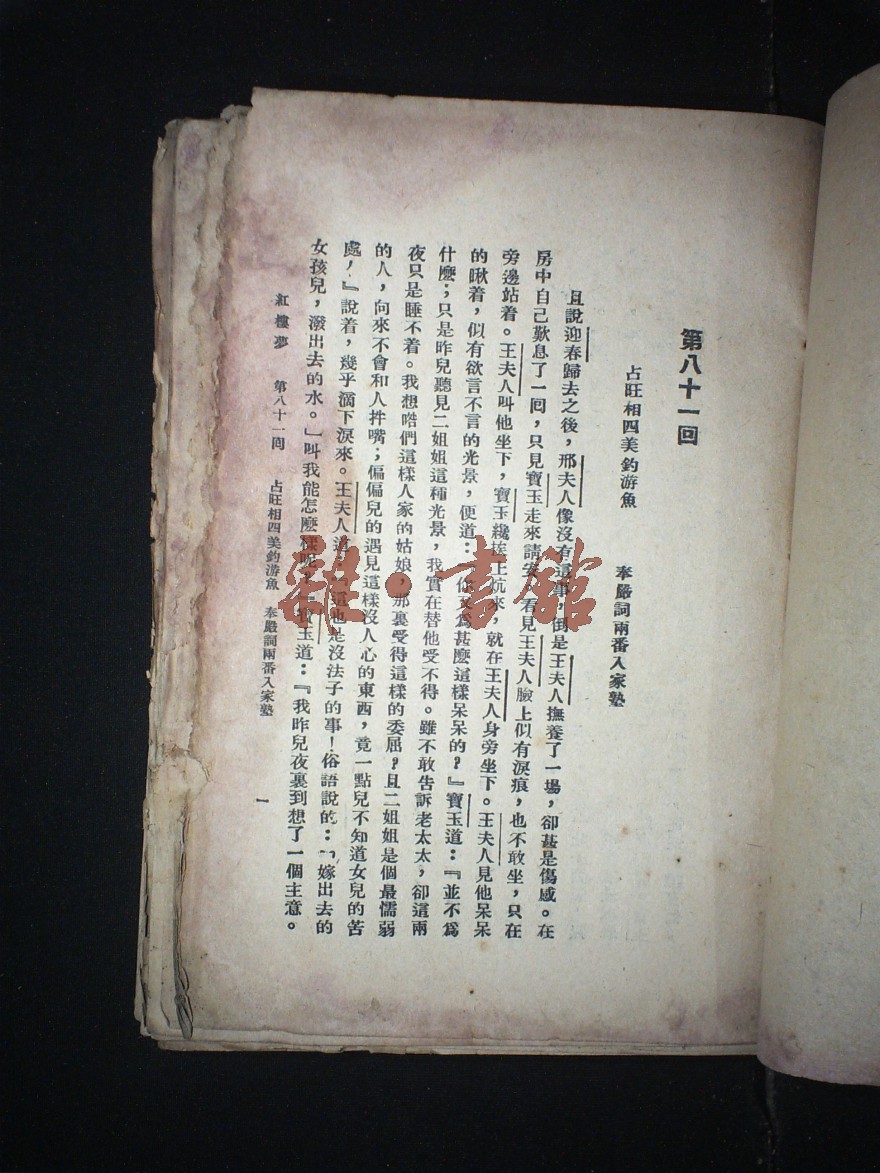 第八十一回
占旺相四美釣游魚 奉嚴詞兩番入家塾
且說迎春歸去之後，邢夫人像沒有這事，倒是王夫人撫養了一場，卻甚是傷感。在
房中自己歎息了一回，只見寶玉走來請安，看見王夫人臉上似有淚痕，也不敢坐，只在
旁邊站着。王夫人叫他坐下，寶玉纔挨上炕來，就在王夫人身旁坐下。王夫人見他呆呆
的瞅着，似有欲言不言的光景，便道：『你又爲甚麽這樣呆呆的？』寶玉道：『並不爲
什麽；只是昨兒聽見二姐姐這種光景，我實在替他受不得。雖不敢告訴老太太，卻這兩
夜只是睡不着。我想喒們這樣人家的姑娘，那裏受得這樣的委屈？且二姐姐是個最懦弱
的人，向來不會和人拌嘴；偏偏兒的遇見這樣沒人心的東西，竟一點兒不知道女兒的苦
處！』說着，幾乎滴下淚來。王夫人道：『這也是沒法子的事！俗語說的：「嫁出去的
女孩兒，潑出去的水。」叫我能怎麽樣呢』寶玉道：『我昨兒夜裏到想了一個主意。
紅樓夢 第八十一回 占旺相四美釣游魚 奉嚴詞兩番入家塾 一
雜·書館